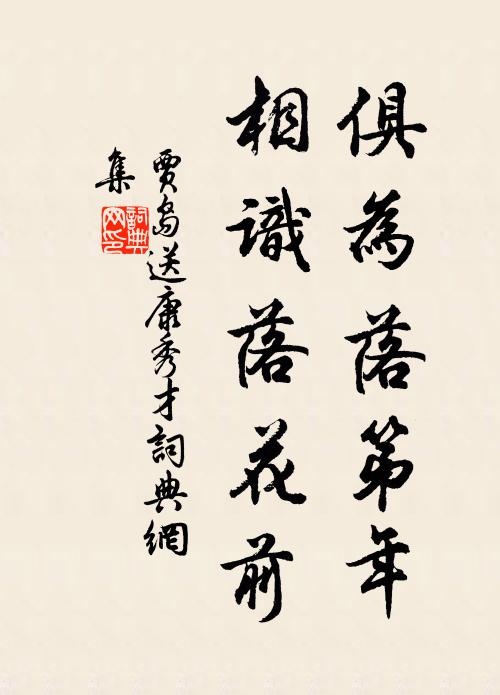 俱為落第年
相識落花前
賈島送康秀才詞典網
集
詞典網印